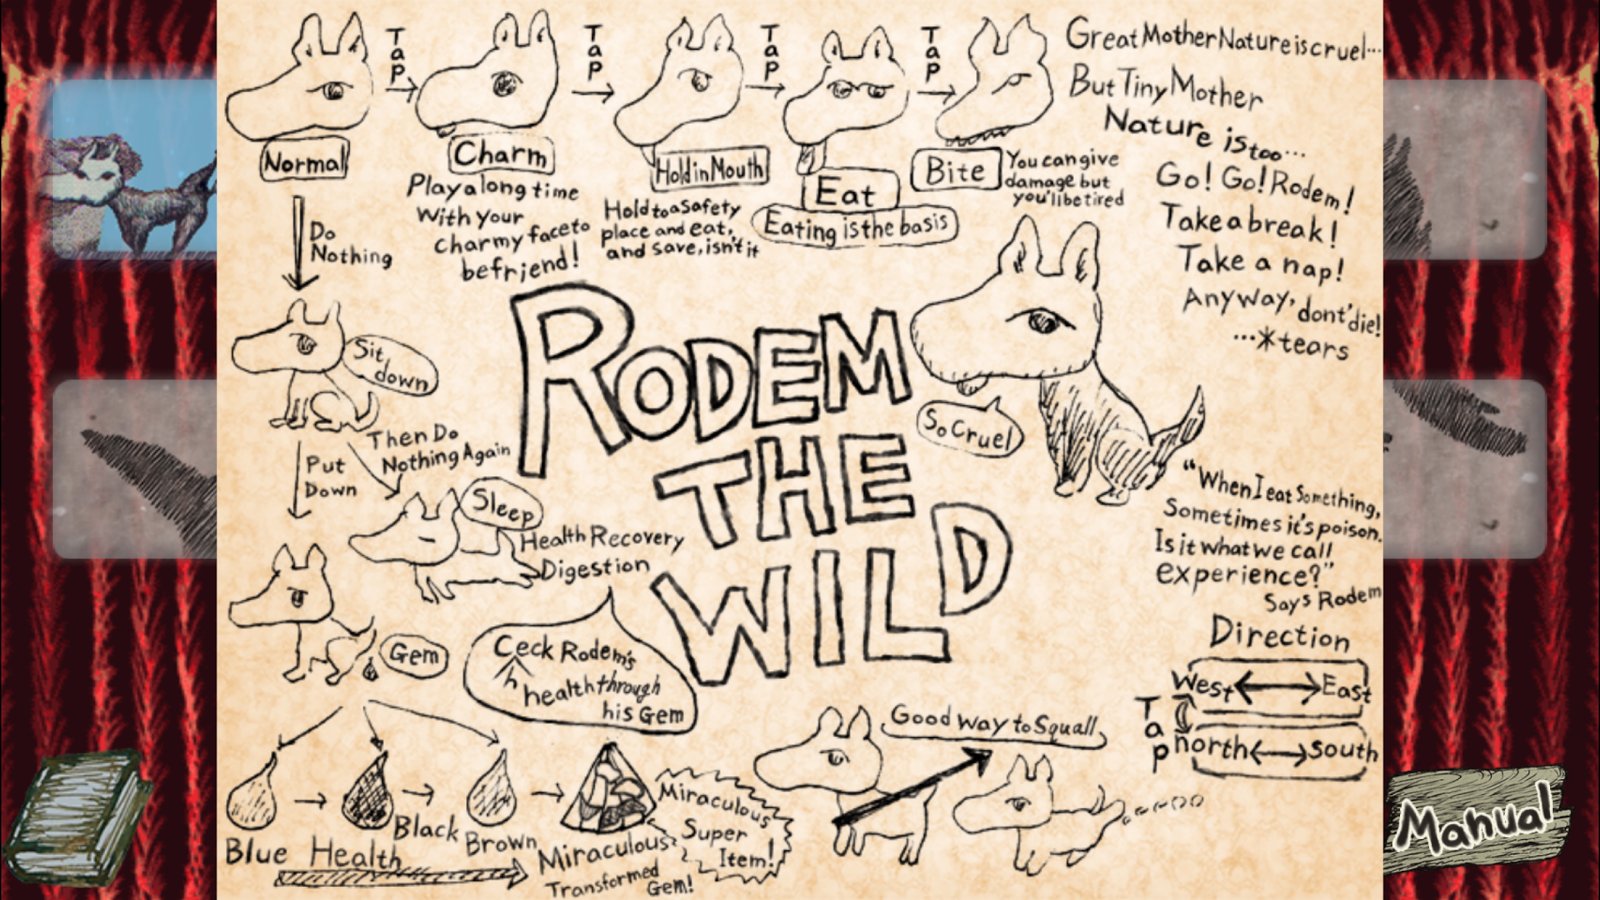 Tap
Tap
Tap
Tap
Normal
Charm
Play a long time
with your
charmy face to
befriend!
Hold in Mouth
Hold to a safety
place and eat,
and save, isn't it
Eat
Eating is the basis
Bite
You can give
damage but
you'll be tired
Great Mother Nature is cruel...
But Tiny Mother
Nature is too...
Go! Go! Rodem!
Take a break!
Take a nap!
Anyway, dont' die!
...*tears
Do
Nothing
Sit
down
Put
Down
Then Do
Nothing Again
Sleep
Health Recovery
Digestion
Gem
Ceck Rodem's
h
health through
his Gem
RODEM
THE
WILD
So Cruel
"When I eat Something,
Sometimes it's poison.
Is it what we call
experience?"
Says Rodem
Direction
West East
Tap
north south
Good way to Squall
Blue
Black
Brown
Health
Miraculous
Transformed
Gem!
Miraculous
Super
Item!
Manual